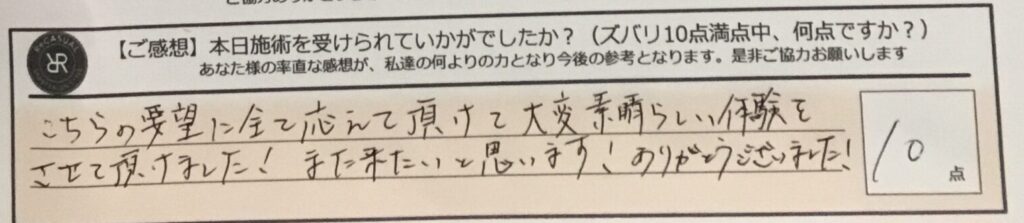 【ご感想】本日施術を受けられていかがでしたか？（ズバリ10点満点中、何点ですか？）
あなた様の率直な感想が、私達の何よりの力となり今後の参考となります。是非ご協力お願いします
こちらの要望に全て応えて頂けて大変素晴らしい体験を
させて頂けました！また来たいと思います！ありがとうございました！
10点